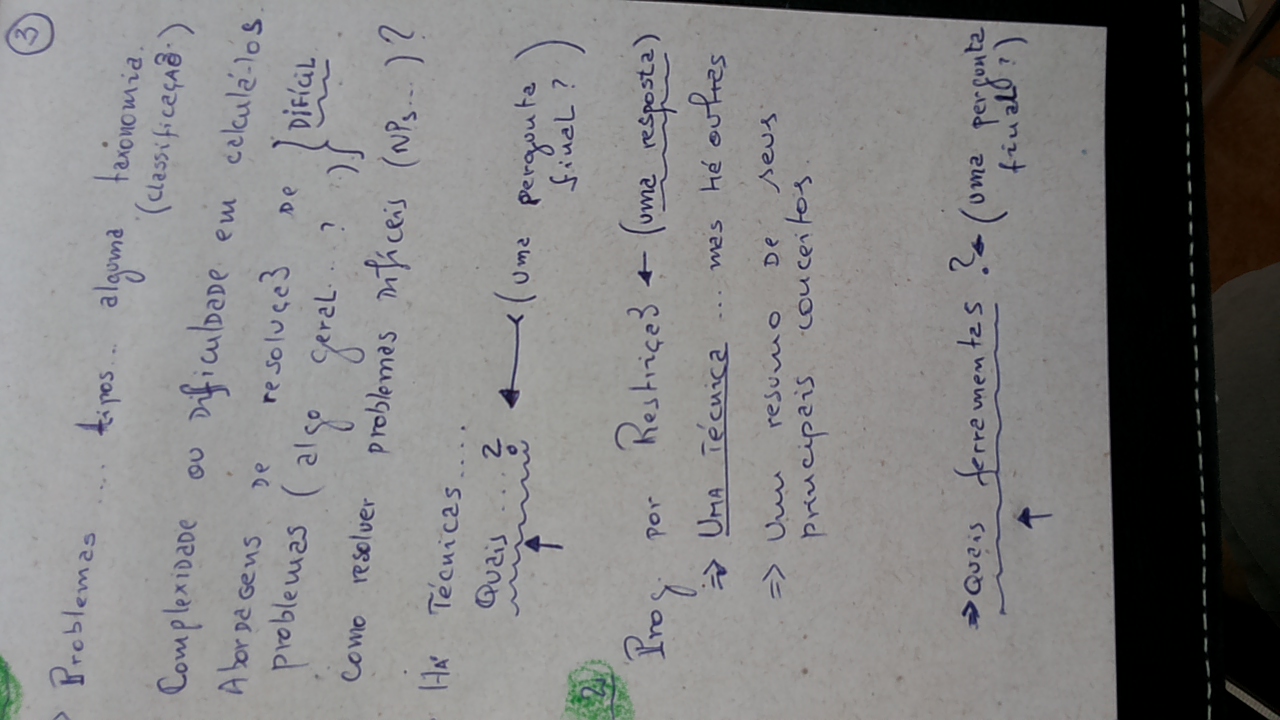 ③
⇒ Problemas ... tipos... alguma taxonomia.
(classificação.)
Complexidade ou dificuldade em calculá-los
Abordagens de resolução de } Difícil
problemas (algo geral...? )}
como resolver problemas difíceis (NPs...)?
Há Técnicas....
Quais...? ← (uma pergunta
final?)
2)
Prog. por Restrição ← (uma resposta)
⇒ Uma Técnica ... mas há outras
⇒ Um resumo de seus
principais conceitos.
⇒ Quais ferramentas? ← (uma pergunta
final?)